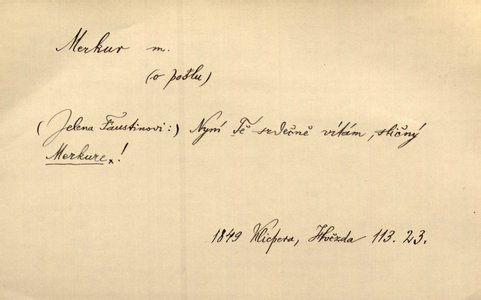 Merkur m.
(o poslu)
(Jelena Faustinovi:) Nyní Tě srdečně vítám, sličný
Merkure,!
1849 Klicpera, Hvězda 113. 23.